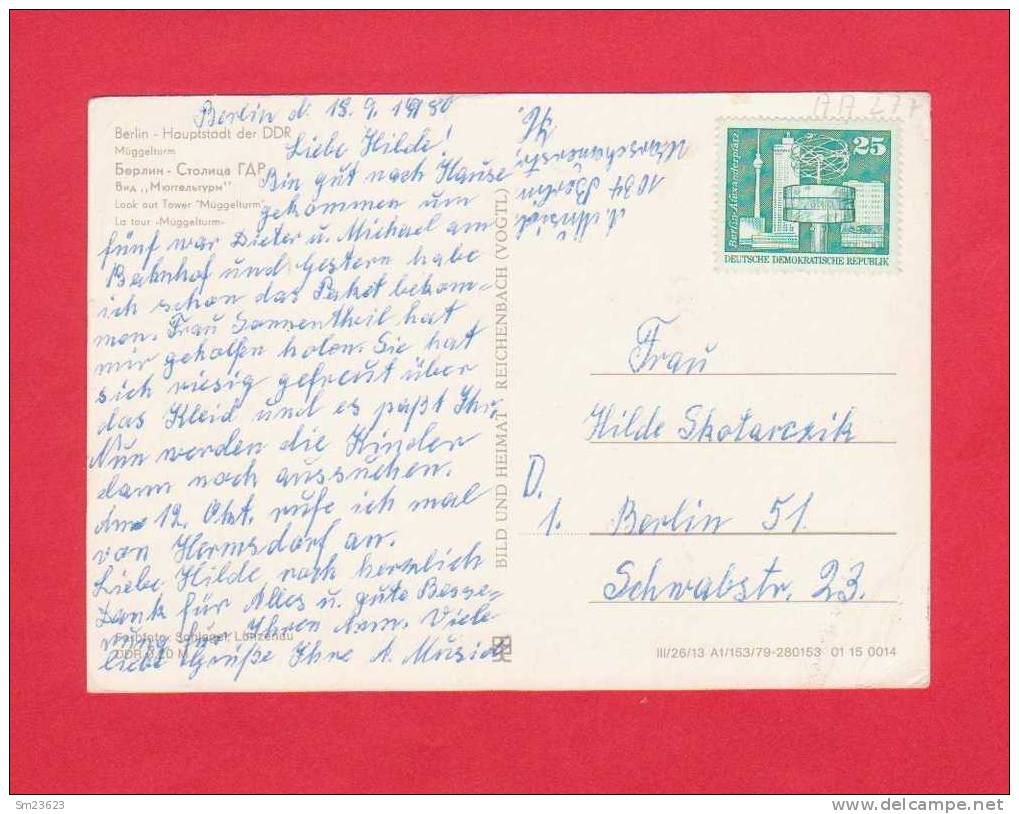 Berlin d. 18.9.1980
Liebe Hilde!
Bin gut nach Hause
gekommen um
fünf war Dieter u. Michael am
Bahnhof und gestern habe
ich schon das Paket bekom-
men. Frau Sonnentheil hat
mir geholfen holen. Sie hat
sich riesig gefreut über
das Kleid und es paßt Ihr.
Nun werden die Kinder
dann noch aussuchen.
Am 12. Okt. rufe ich mal
von Hermsdorf an.
Liebe Hilde noch herzlich
Dank für Alles u. gute Besse-
rung für Ihren Arm. Viele
liebe Grüße Ihre A. Musiol
Berlin - Hauptstadt der DDR
Müggelturm
Берлин - Столица ГДР
Вид „Мюггельтурм"
Look out Tower "Müggelturm"
La tour »Müggelturm«
Farbfoto: Schlegel, Lunzenau
DDR 0,20 M
BILD UND HEIMAT REICHENBACH (VOGTL)
A. Musiol
1034 Berlin
Warschauerstr.
AA 277
25
Berlin-Alexanderplatz
DEUTSCHE DEMOKRATISCHE REPUBLIK
Frau
Hilde Skotarczik
D.
1. Berlin 51.
Schwabstr. 23.
III/26/13 A1/153/79-280153 01 15 0014
Sm23623
delcampe.net